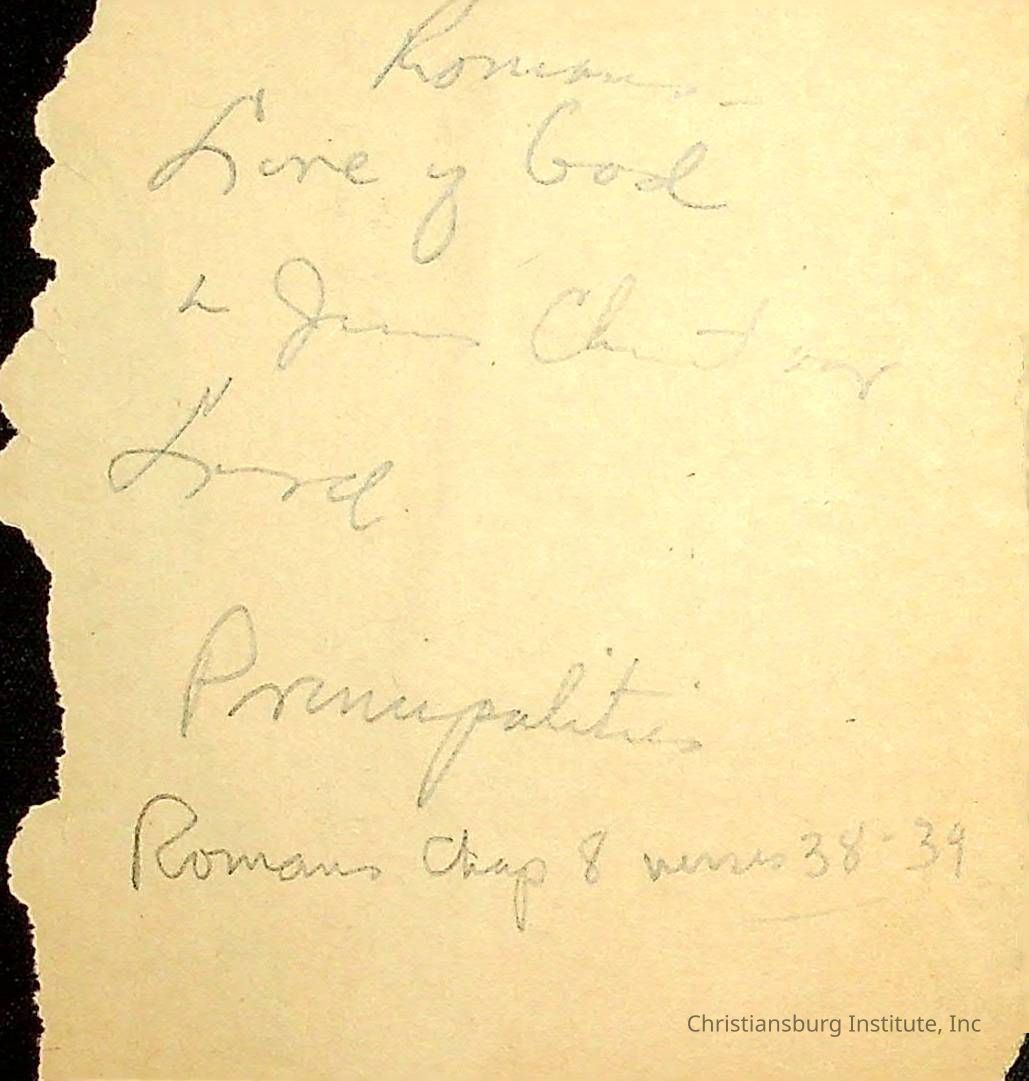 Romans
Love of God
Jesus Christ our
Lord
Principalities
Romans Chap 8 verses 38-39
Christiansburg Institute, Inc